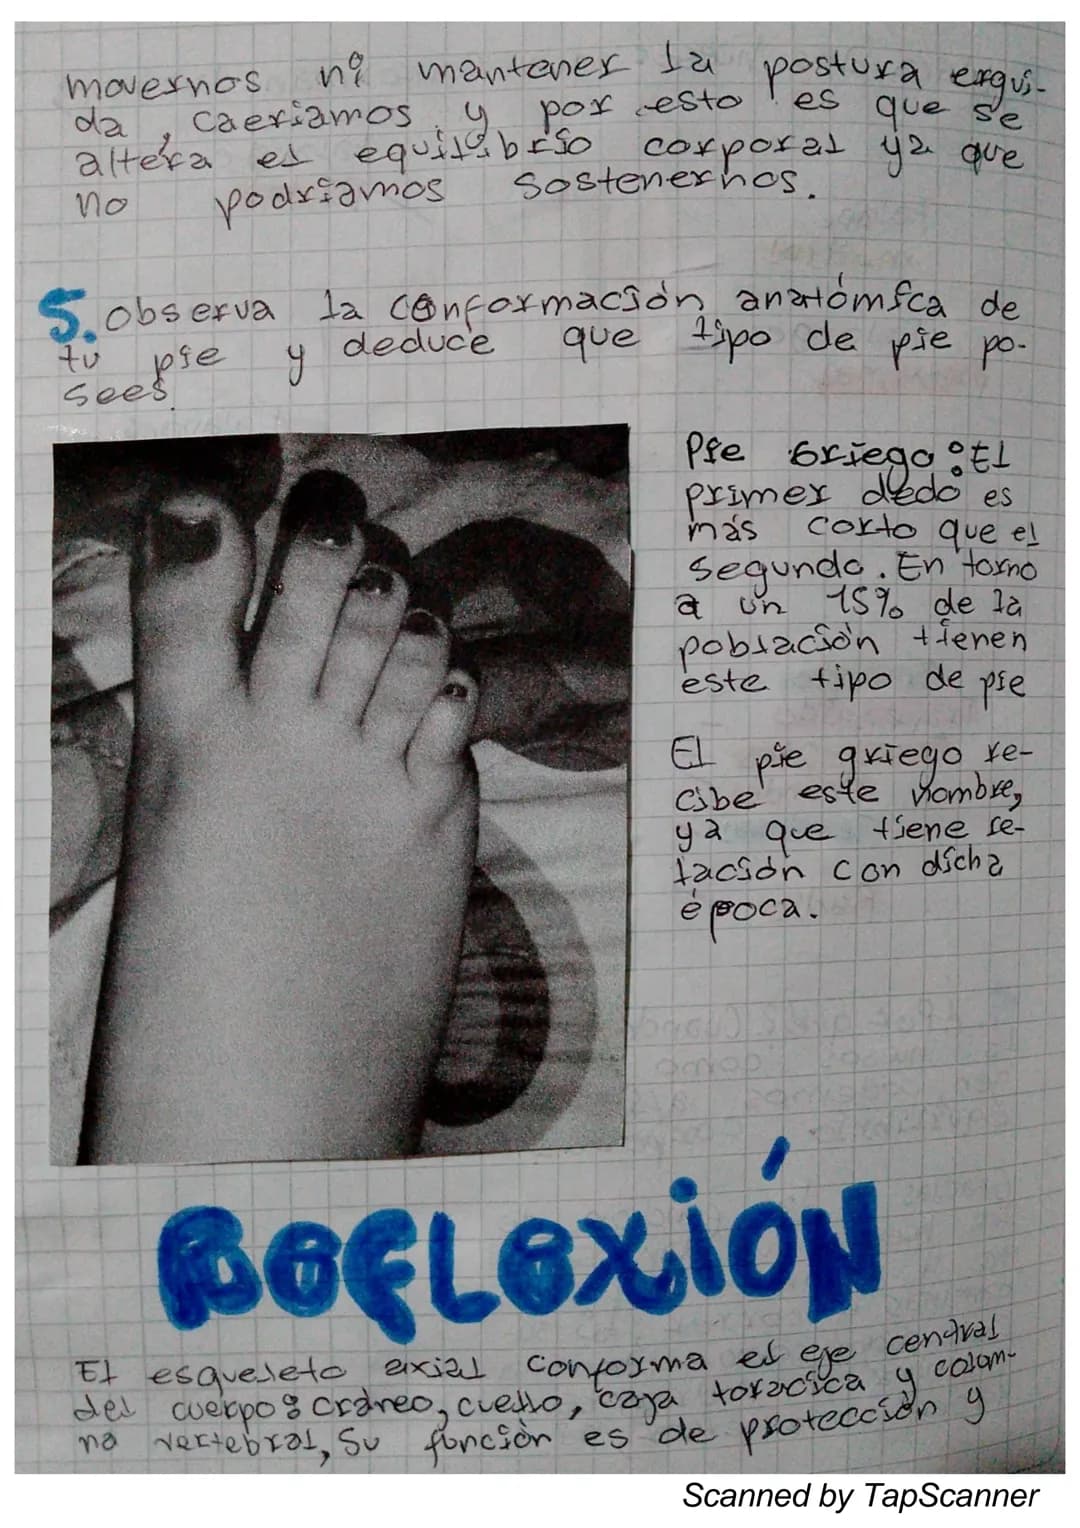 movernos ni mantener la postura ergui-
da, caeriamos y por esto es que se
altera el equilibrio corporal ya que
no podriamos sostenernos.
5. observa la conformación anatómica de
tu pie y deduce que tipo de pie po-
sees.
Pie Griego: El
primer dedo es
más corto que el
segundo. En torno
a un 15% de la
población tienen
este tipo de pie
El pie griego re-
cibe este nombre,
ya que tiene re-
lación con dicha
época.
REFLEXIÓN
El esqueleto axial conforma el eje central
del cuerpo: cráneo, cuello, caja toracica y colum-
na vertebral, Su función es de protección y
Scanned by TapScanner